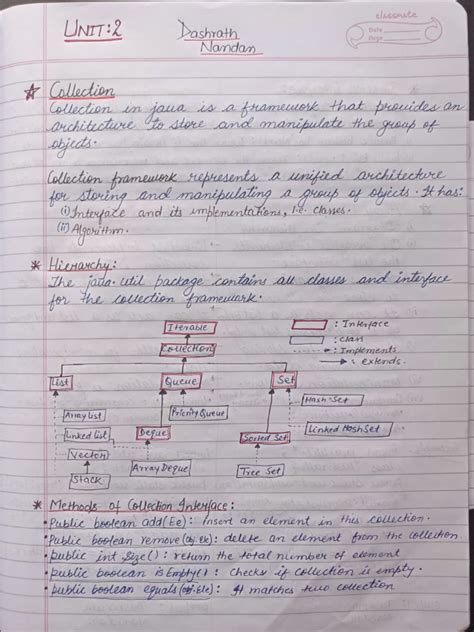 classmate
Date
Page
UNIT:2
Dashrath
Nandan
Collection
Collection in java is a framework that provides an
architecture to store and manipulate the group of
objects.
Collection framework represents a unified architecture
for storing and manipulating a group of objects. It has:
(i) Interface and its implementations, i.e. classes.
(ii) Algorithm.
* Hierarchy:
The java.util package contains all classes and interface
for the collection framework.
Iterable
: Interface
Collection
: class
: Implements
: extends.
List
Queue
Set
ArrayList
Priority Queue
Hash-Set
Linked List
Deque
Sorted Set
Linked HashSet
Vector
Array Deque
Tree Set
Stack
* Methods of Collection Interface:
• Public boolean add(Ee): Insert an element in this collection.
• Public boolean remove(obj.Ele): delete an element from the collection
• public int size(): return the total number of element
• public boolean isEmpty(): checks if collection is empty.
• public boolean equals(obj.Ele): It matches two collection